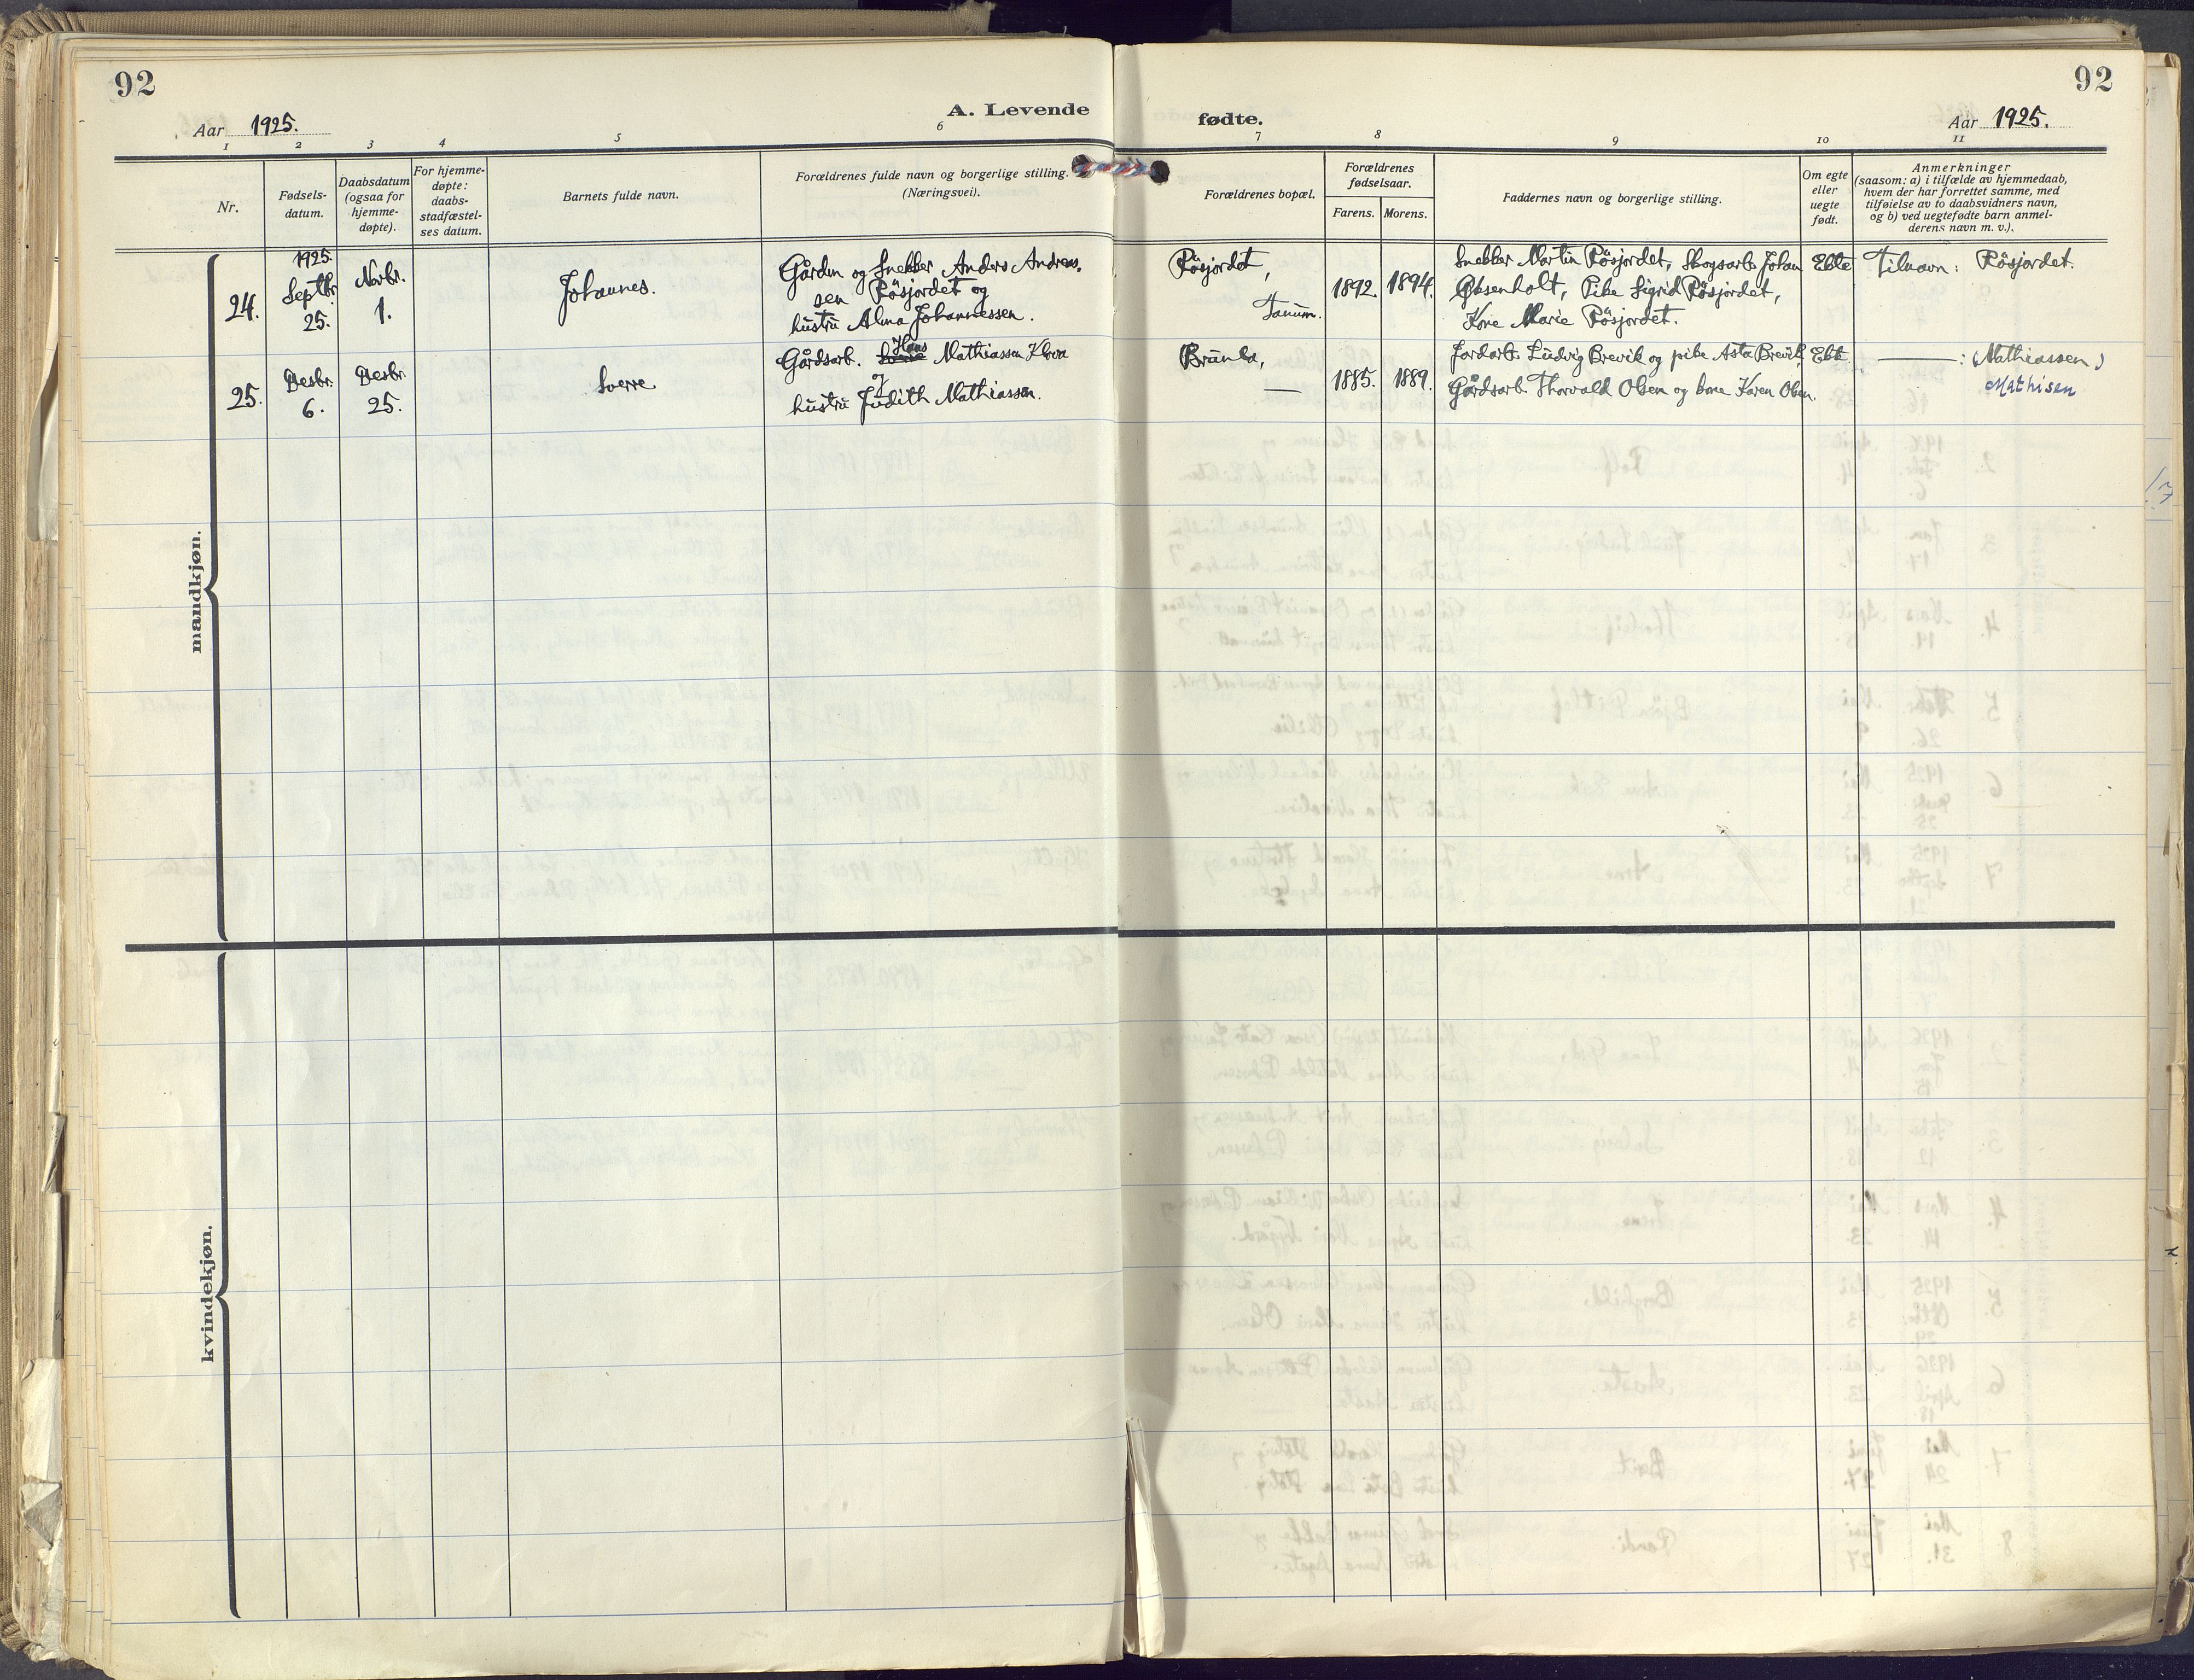 92
92
Aar 1925.
A. Levende
fødte.
Aar 1925.
1
2
3
4
5
6
7
8
9
10
11
Nr.
Fødsels-
datum.
Daabsdatum
(ogsaa for
hjemme-
døpte).
For hjemme-
døpte:
daabs-
stadfæstel-
ses datum.
Barnets fulde navn.
Forældrenes fulde navn og borgerlige stilling.
(Næringsvei).
Forældrenes bopæl.
Forældrenes
fødselsaar.
Farens.
Morens.
Faddernes navn og borgerlige stilling.
Om egte
eller
uegte
født.
Anmerkninger
(saasom: a) i tilfælde av hjemmedaab,
hvem der har forrettet samme, med
tilføielse av to daabsvidners navn,
og b) ved uegtefødte barn anmel-
derens navn m. v.).
mandkjøn.
24.
1925.
Septbr.
25.
Novbr.
1.
Johannes.
Gårdm og Snekker Anders Andreas.
sen Røsjordet og
hustru Alma Johannessen.
Røsjordet,
Tanum.
1892.
1894.
Snekker Martin Røsjordet, Skogsarb. Johan
Øksenholt, Pike Sigrid Røsjordet,
Kone Marie Røsjordet.
Ekte
Tilnavn: Røsjordet.
25.
Desbr.
6.
Desbr.
25.
Sverre
Gårdsarb. Hans Mathiassen
og
hustru Judith Mathiassen.
Brunla,
—
1885.
1889.
Jordarb. Ludvig Brevik og pike Asta Brevik,
Gårdsarb. Thorvald Olsen og kone Karen Olsen.
Ekte
— : (Mathiassen)
Mathisen
kvindekjøn.